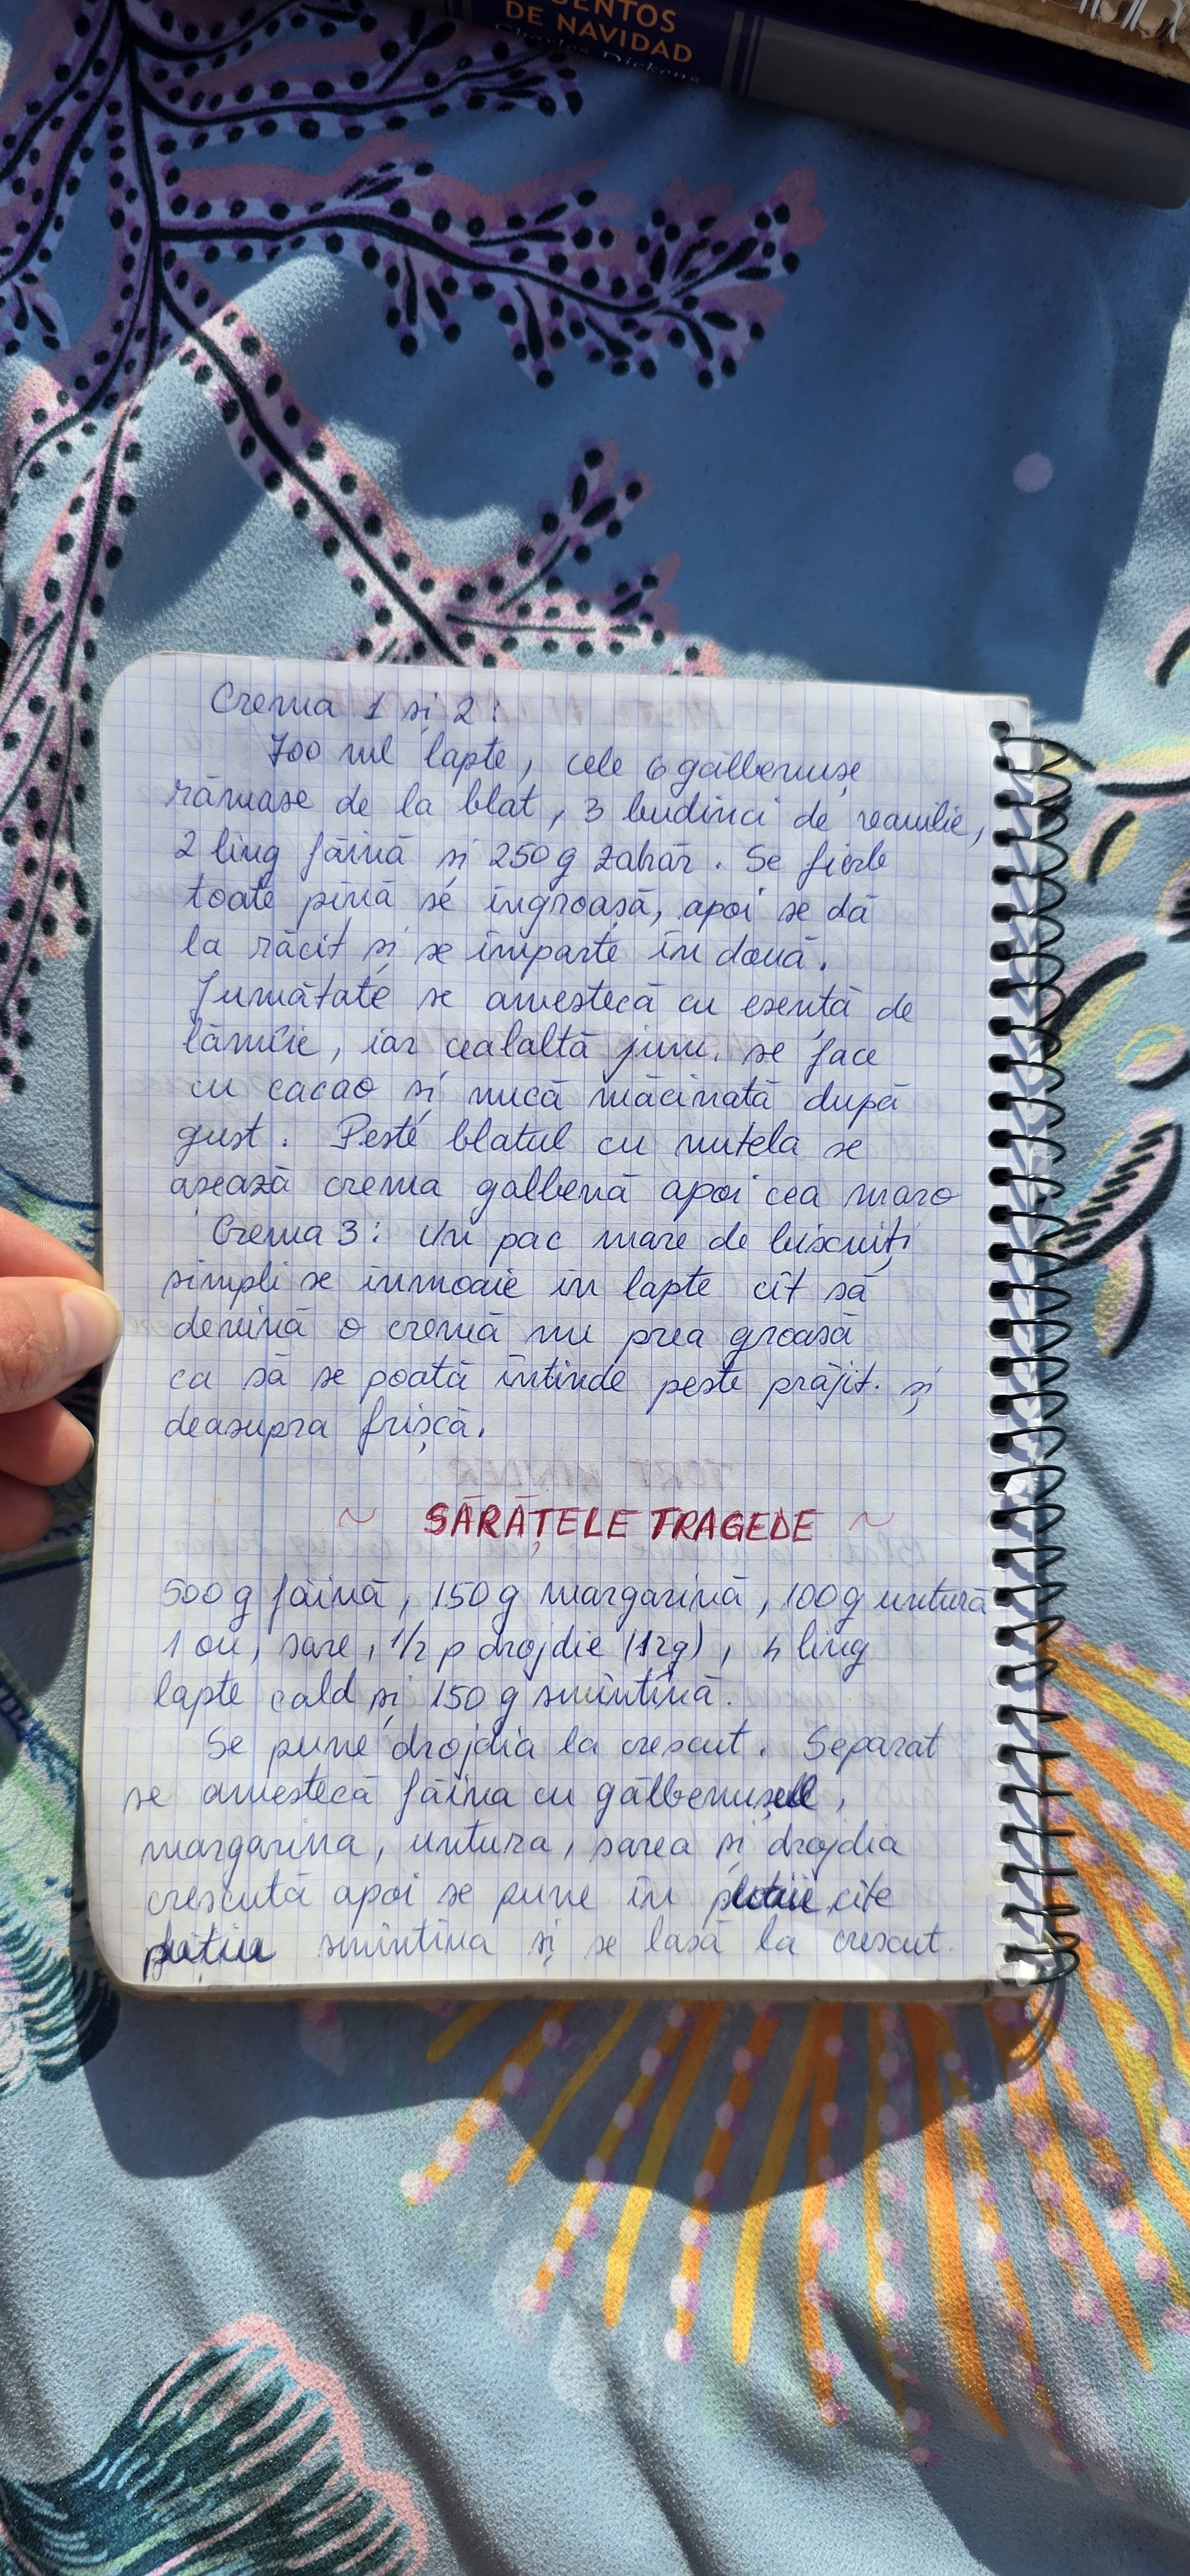 ENTOS
DE NAVIDAD
Charles Dickens
Crema 1 și 2:
700 ml lapte, cele 6 gălbenușe
rămase de la blat, 3 budinci de vanilie,
2 ling făină și 250 g zahăr. Se fierb
toate pînă se îngroașă, apoi se dă
la răcit și se împarte în două.
Jumătate se amestecă cu esență de
lămîie, iar cealaltă jum. se face
cu cacao și nucă măcinată după
gust. Peste blatul cu nutela se
așează crema galbenă apoi cea maro
Crema 3: Un pac mare de biscuiți
simpli se înmoaie în lapte cît să
devină o cremă nu prea groasă
ca să se poată întinde peste prăjit. și
deasupra frișcă.
~ SĂRĂȚELE TRAGEDE ~
500 g făină, 150 g margarină, 100 g untură
1 ou, sare, 1/2 p drojdie (12g), 4 ling
lapte cald și 150 g smîntînă.
Se pune drojdia la crescut. Separat
se amestecă făina cu gălbenușul,
margarina, untura, sarea și drojdia
crescută apoi se pune în cîte
puțin smîntîna și se lasă la crescut.